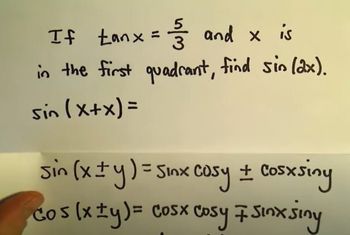 If tanx = 5/3 and x is
in the first quadrant, find sin(2x).
sin(x+x)=
sin(x±y)=sinx cosy ± cosxsiny
cos(x±y)= cosx cosy ∓ sinxsiny